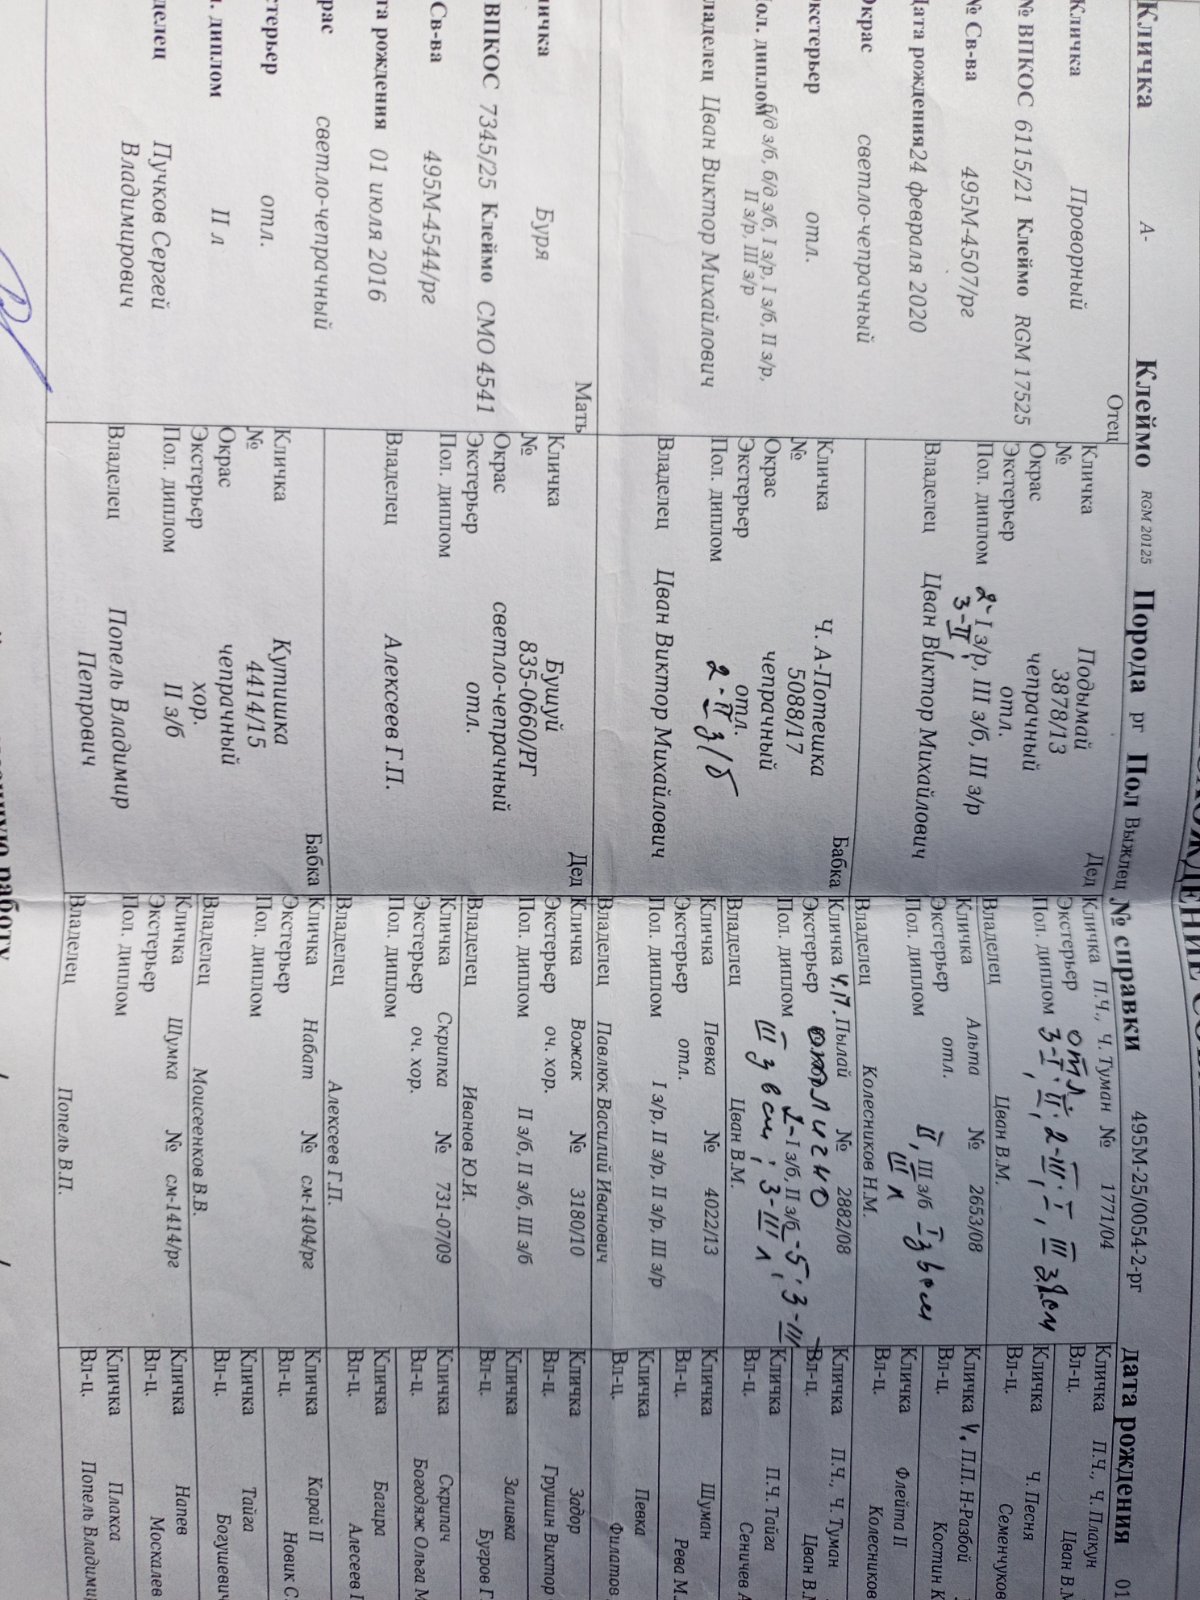 Кличка А- Клеймо RGM 20125 Порода рг Пол Выжлец № справки 495М-25/0054-2-рг дата рождения 01
Отец
Кличка Проворный
№ ВПКОС 6115/21 Клеймо RGM 17525
№ Св-ва 495М-4507/рг
Дата рождения 24 февраля 2020
Окрас светло-чепрачный
Экстерьер отл.
Пол. диплом б/д з/б, б/д з/б, I з/р, I з/б, II з/р,
II з/р, III з/р
Владелец Цван Виктор Михайлович
Мать
Кличка Буря
ВПКОС 7345/25 Клеймо СМО 4541
Св-ва 495М-4544/рг
та рождения 01 июля 2016
рас светло-чепрачный
стерьер отл.
л. диплом II л
делец Пучков Сергей
Владимирович
Дед
Кличка Подымай
№ 3878/13
Окрас чепрачный
Экстерьер отл.
Пол. диплом 2-I з/р, III з/б, III з/р
3-II
Владелец Цван Виктор Михайлович
Бабка
Кличка Ч. А-Потешка
№ 5088/17
Окрас чепрачный
Экстерьер отл.
Пол. диплом 2-II з/б
Владелец Цван Виктор Михайлович
Дед
Кличка Бушуй
№ 835-0660/РГ
Окрас светло-чепрачный
Экстерьер отл.
Пол. диплом
Владелец Алексеев Г.П.
Бабка
Кличка Кутишка
№ 4414/15
Окрас чепрачный
Экстерьер хор.
Пол. диплом II з/б
Владелец Попель Владимир
Петрович
Кличка П.Ч., Ч. Туман № 1771/04
Экстерьер отл.
Пол. диплом
Владелец Цван В.М.
Кличка Альта № 2653/08
Экстерьер отл.
Пол. диплом II, III з/б
III л
Владелец Колесников Н.М.
Кличка Ч.П. Пылай № 2882/08
Экстерьер отлично
Пол. диплом 2-I з/б, II з/б
Владелец Цван В.М.
Кличка Певка № 4022/13
Экстерьер отл.
Пол. диплом I з/р, II з/р, II з/р, III з/р
Владелец Павлюк Василий Иванович
Кличка Вожак № 3180/10
Экстерьер оч. хор.
Пол. диплом II з/б, II з/б, III з/б
Владелец Иванов Ю.И.
Кличка Скрипка № 731-07/09
Экстерьер оч. хор.
Пол. диплом
Владелец Алексеев Г.П.
Кличка Набат № см-1404/рг
Экстерьер
Пол. диплом
Владелец Моисеенков В.В.
Кличка Шумка № см-1414/рг
Экстерьер
Пол. диплом
Владелец Попель В.П.
Кличка П.Ч., Ч.Плакун
Вл-ц. Цван В.М
Кличка Ч. Песня
Вл-ц. Семенчуков
Кличка Ч. П.П. Н-Разбой
Вл-ц. Костин К
Кличка Флейта II
Вл-ц. Колесников
Кличка П.Ч., Ч. Туман
Вл-ц. Цван В.М
Кличка П.Ч. Тайга
Вл-ц. Сеничев А
Кличка Шуман
Вл-ц. Рева М.
Кличка Певка
Вл-ц. Филатов
Кличка Задор
Вл-ц. Грушин Виктор
Кличка Заливка
Вл-ц. Бугров Г.
Кличка Скрипач
Вл-ц. Богодяж Ольга М
Кличка Багира
Вл-ц. Алесеев Г
Кличка Карай II
Вл-ц. Новик С.
Кличка Тайга
Вл-ц. Богушевич
Кличка Напев
Вл-ц. Москалев
Кличка Плакса
Вл-ц. Попель Владими